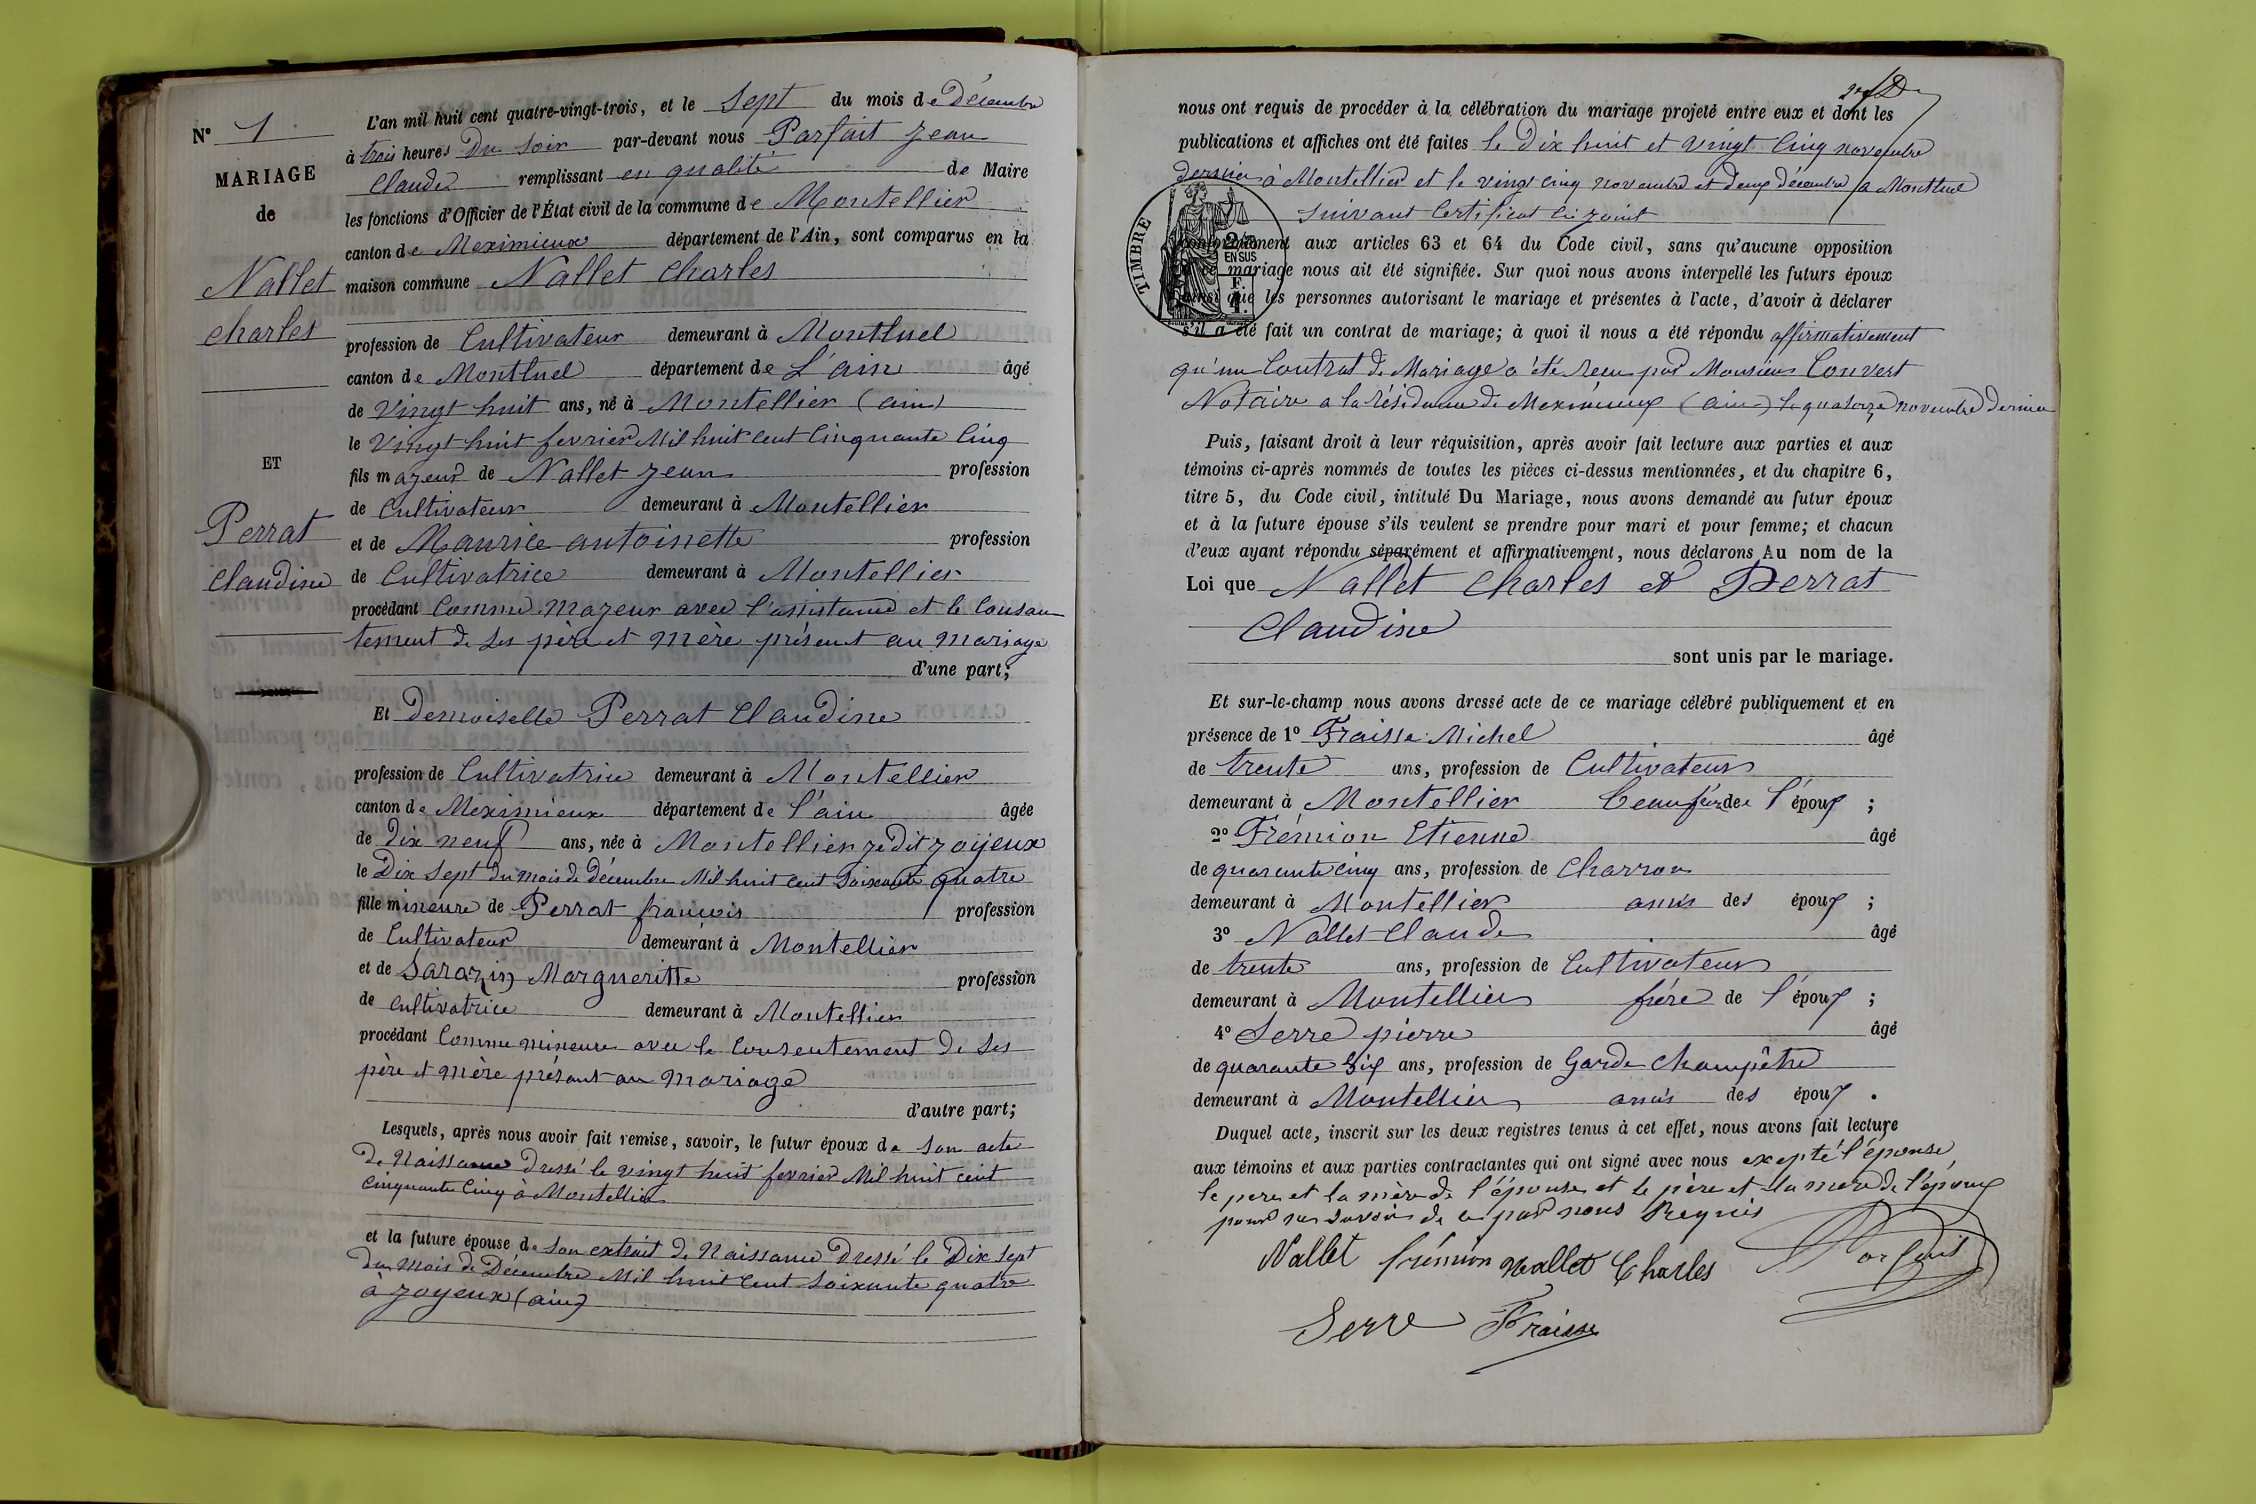 N° 1
MARIAGE
de
Nallet
charles
ET
Perrat
Claudine
L'an mil huit cent quatre-vingt-trois, et le sept du mois de Décembre
à trois heures Du soir par-devant nous Parfait Jean
Claude remplissant en qualité de Maire
les fonctions d'Officier de l'État civil de la commune de Montellier
canton de Meximieux département de l'Ain, sont comparus en la
maison commune Nallet charles
profession de Cultivateur demeurant à Montluel
canton de Montluel département de L'ain âgé
de vingt huit ans, né à Montellier (ain)
le vingt huit fevrier Mil huit cent Cinquante Cinq
fils majeur de Nallet jean profession
de Cultivateur demeurant à Montellier
et de Maurice antoinette profession
de Cultivatrice demeurant à Montellier
procédant Comme Majeur avec l'assistance et le Consan
tement de ses père et mère présent au Mariage
d'une part;
Et demoiselle Perrat Claudine
profession de Cultivatrice demeurant à Montellier
canton de Meximieux département de l'ain âgée
de dix neuf ans, née à Montellier jedit joyeux
le Dix sept du mois de Décembre Mil huit cent Soixante quatre
fille mineure de Perrat francois profession
de Cultivateur demeurant à Montellier
et de Sarazin Margueritte profession
de cultivatrice demeurant à Montellier
procédant Comme mineure avec le Consentement de ses
père et mère présant au mariage
d'autre part;
Lesquels, après nous avoir fait remise, savoir, le futur époux de son acte
de Naissance Dressé le vingt huit fevrier Mil huit cent
cinquante Cinq à Montellier
et la future épouse de son extrait de Naissance Dressé le Dix sept
du mois de Décembre Mil huit cent soixante quatre
à joyeux (ain)
nous ont requis de procéder à la célébration du mariage projeté entre eux et dont les
publications et affiches ont été faites le Dix huit et vingt Cinq novembre
dernier à Montellier et le vingt cinq novembre et deux décembre a Montluel
suivant Certificat ci joint
TIMBRE
2/10
EN SUS
F.
1.
conformément aux articles 63 et 64 du Code civil, sans qu'aucune opposition
à ce mariage nous ait été signifiée. Sur quoi nous avons interpellé les futurs époux
ainsi que les personnes autorisant le mariage et présentes à l'acte, d'avoir à déclarer
s'il a été fait un contrat de mariage; à quoi il nous a été répondu affirmativement
qu'un Contrat de Mariage a été recu par Monsieur Convert
Notaire a la résidence de Meximieux (ain) le quatorze novembre dernier
Puis, faisant droit à leur réquisition, après avoir fait lecture aux parties et aux
témoins ci-après nommés de toutes les pièces ci-dessus mentionnées, et du chapitre 6,
titre 5, du Code civil, intitulé Du Mariage, nous avons demandé au futur époux
et à la future épouse s'ils veulent se prendre pour mari et pour femme; et chacun
d'eux ayant répondu séparément et affirmativement, nous déclarons Au nom de la
Loi que Nallet Charles et Perrat
Claudine
sont unis par le mariage.
Et sur-le-champ nous avons dressé acte de ce mariage célébré publiquement et en
présence de 1° Fraisse Michel âgé
de trente ans, profession de Cultivateur
demeurant à Montellier beaufrère de l'époux ;
2° Frémion Etienne âgé
de quarante cinq ans, profession de Charron
demeurant à Montellier amis des époux ;
3° Nallet Claude âgé
de trente ans, profession de Cultivateur
demeurant à Montellier frère de l'époux ;
4° Serre pierre âgé
de quarante six ans, profession de Garde Champêtre
demeurant à Montellier amis des époux .
Duquel acte, inscrit sur les deux registres tenus à cet effet, nous avons fait lecture
aux témoins et aux parties contractantes qui ont signé avec nous excepté l'épouse
le pere et la mère de l'épouse et le père et la mere de l'époux
pour ne savoir de ce par nous Requis
Nallet frémion Nallet Charles Parfait
Serre Fraisse